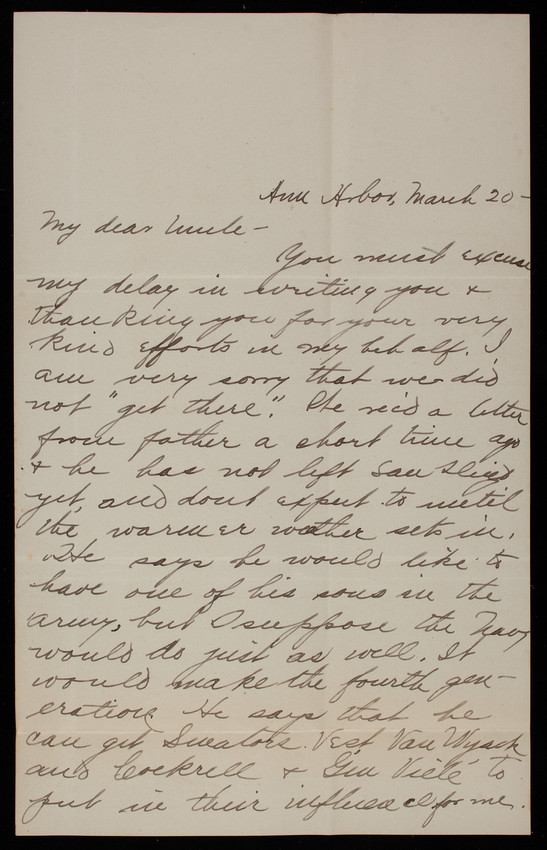 Ann Arbor, March 20-
My dear Uncle-
You must excuse
my delay in writing you &
thanking you for your very
kind efforts in my behalf. I
am very sorry that we did
not "get there". We rec'd a letter
from father a short time ago
& he has not left San Diego
yet, and dont expect to until
the warmer weather sets in.
He says he would like to
have one of his sons in the
army, but I suppose the Navy
would do just as well. It
would make the fourth gen-
eration. He says that he
can get Senators Vest Van Wyack
and Cockrell & Gen Vielé to
put in their influence for me.